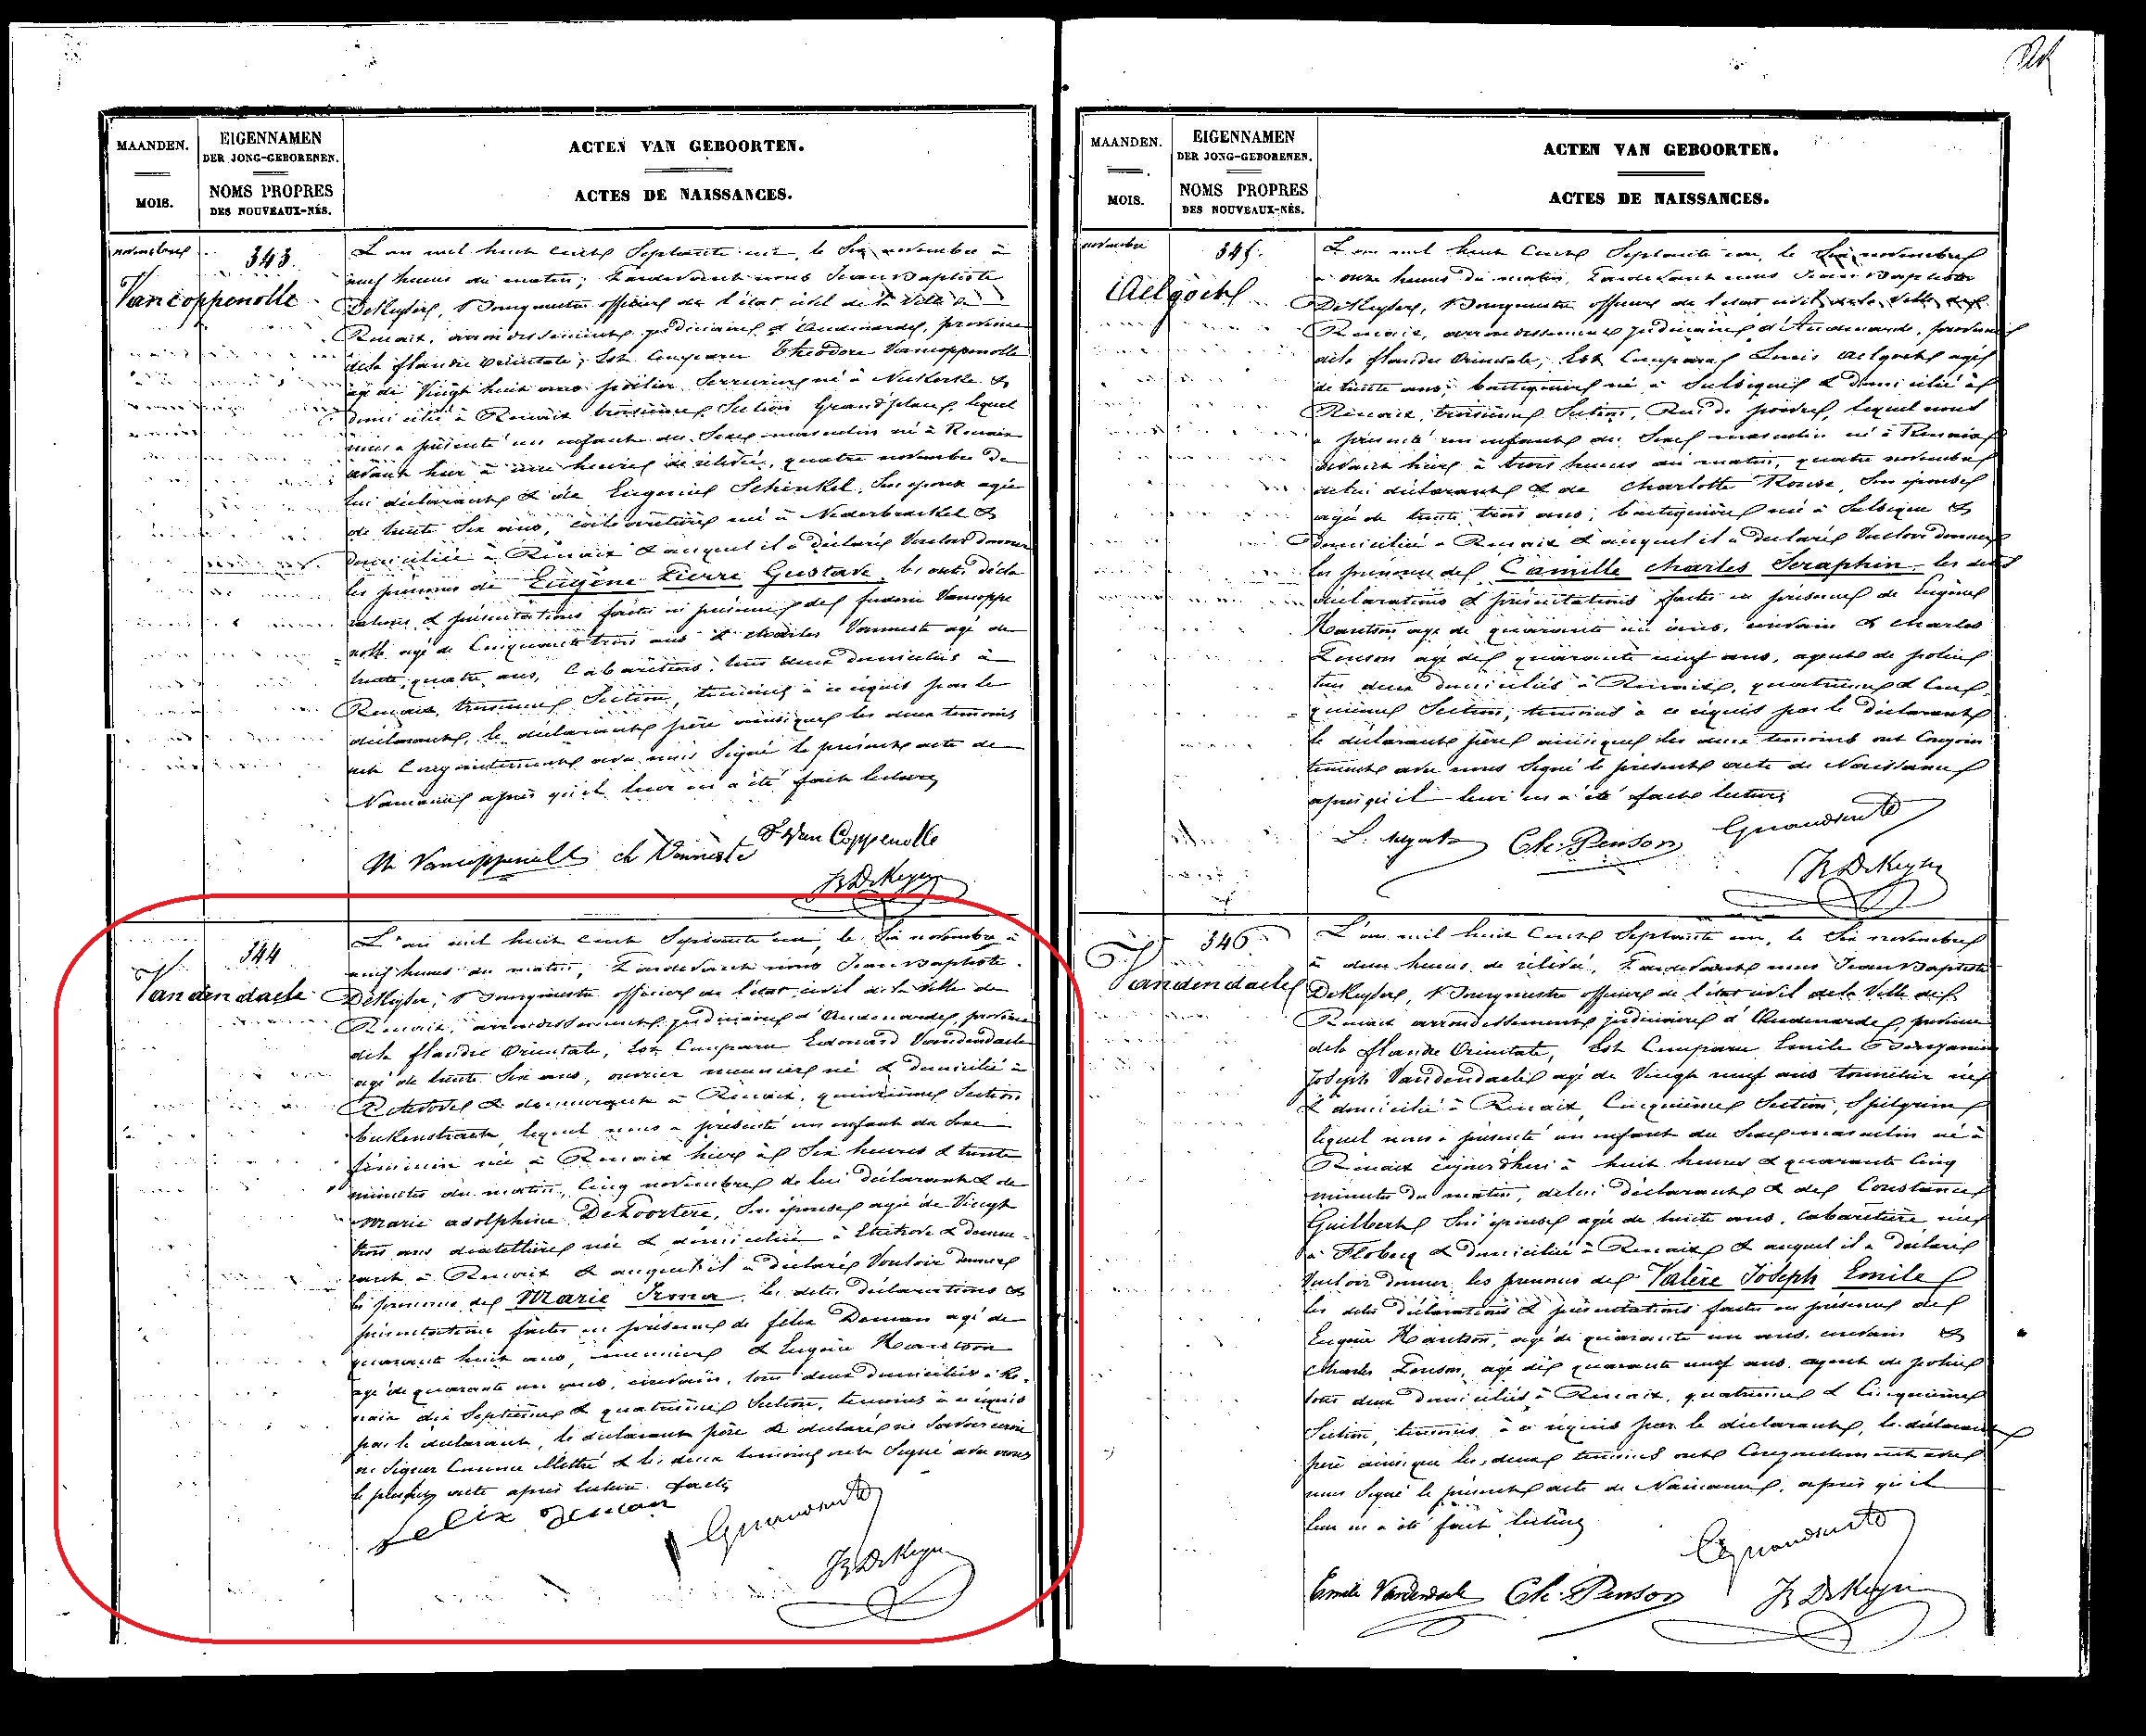 MAANDEN.
MOIS.
EIGENNAMEN
DER JONG-GEBORENEN.
NOMS PROPRES
DES NOUVEAUX-NÉS.
ACTEN VAN GEBOORTEN.
ACTES DE NAISSANCES.
novembre
343.
Vancoppenolle
L'an mil huit cent Septante un, le Six novembre à
neuf heures du matin, Pardevant nous Jean Baptiste
DeKeyser, Bourgmestre officier de l'état civil de la Ville de
Renaix, arrondissement judiciaire d'Audenarde, province
de la flandre Orientale, Est Comparu Théodore Vancoppenolle
agé de Vingt huit ans poêlier Serrurier né à Nukerke &
domicilié à Renaix troisième Section Grand'place, lequel
nous a présenté un enfant du Sexe masculin né à Renaix
avant hier à une heure de relevée, quatre novembre de
lui déclarant & de Eugenie Schinkel, Son épouse agée
de trente Six ans, née à Nederbrakel &
domiciliée à Renaix & auquel il a déclaré Vouloir donner
les prénoms de Eugène Pierre Gustave les dites décla
rations & présentations faites en présence de frederic Vancoppe
nolle agé de Cinquante trois ans & charles Vanneste agé de
trente quatre ans, Cabaretiers, tous deux domiciliés à
Renaix, troisième Section, témoins à ce requis par le
déclarant, le déclarant père ainsi que les deux témoins
ont Conjointement avec nous Signé le présent acte de
Naissance après qu'il leur en a été fait lecture
Vancoppenolle ch Vanneste F Van Coppenolle
DeKeyser
344
Vandendaele
L'an mil huit cent Septante un, le Six novembre à
neuf heures du matin, Pardevant nous Jean Baptiste
DeKeyser, Bourgmestre officier de l'état civil de la Ville de
Renaix, arrondissement judiciaire d'Audenarde, province
de la flandre Orientale, Est Comparu Edouard Vandendaele
agé de trente Six ans, ouvrier meunier né & domicilié à
Etichove & demeurant à Renaix, quinzième Section
lequel nous a présenté un enfant du Sexe
féminin née à Renaix hier à Six heures & trente
minutes du matin, Cinq novembre de lui déclarant & de
Marie adolphine DeVoortere, Son épouse agée de Vingt
trois ans dentellière née & domiciliée à Etichove & demeu-
rant à Renaix & auquel il a déclaré Vouloir donner
les prénoms de Marie Irma, les dites déclarations &
présentations faites en présence de félix Deman agé de
quarante huit ans, meunier & Eugène
agé de quarante un ans, écrivain, tous deux domiciliés à Re-
naix dix Septième & quatrième Section, témoins à ce requis
par le déclarant, le déclarant père a déclaré ne Savoir écrire
ni Signer Comme illettré & les deux témoins ont Signé avec nous
le présent acte après lecture faite
felix deman
DeKeyser
MAANDEN.
MOIS.
EIGENNAMEN
DER JONG-GEBORENEN.
NOMS PROPRES
DES NOUVEAUX-NÉS.
ACTEN VAN GEBOORTEN.
ACTES DE NAISSANCES.
novembre
345.
Aelgoet
L'an mil huit Cent Septante un, le Six novembre
à onze heures du matin, Pardevant nous Jean Baptiste
DeKeyser, Bourgmestre officier de l'état civil de la Ville de
Renaix, arrondissement judiciaire d'Audenarde, province
de la flandre Orientale, Est Comparu Louis Aelgoet agé
de trente ans, boutiquier né à Sulsique & domicilié à
Renaix, troisième Section, Rue de lequel nous
a présenté un enfant du Sexe masculin né à Renaix
avant hier à trois heures du matin, quatre novembre
de lui déclarant & de Charlotte Son épouse
agée de trente trois ans, boutiquière née à Sulsique &
domiciliée à Renaix & auquel il a déclaré Vouloir donner
les prénoms de Camille Charles Seraphin les dites
déclarations & présentations faites en présence de Eugène
agé de quarante un ans, écrivain & charles
Penson agé de quarante neuf ans, agent de police
tous deux domiciliés à Renaix, quatrième & Cinq
quième Section, témoins à ce requis par le déclarant
le déclarant père ainsi que les deux témoins ont Conjoin
tement avec nous Signé le présent acte de Naissance
après qu'il leur en a été fait lecture
Ch. Penson
DeKeyser
346
Vandendaele
L'an mil huit Cent Septante un, le Six novembre
à deux heures de relevée, Pardevant nous Jean Baptiste
DeKeyser, Bourgmestre officier de l'état civil de la Ville de
Renaix arrondissement judiciaire d'Audenarde, province
de la flandre Orientale, Est Comparu Emile Benjamin
Joseph Vandendaele agé de Vingt neuf ans tonnelier né
& domicilié à Renaix, Cinquième Section, Spilgrim
lequel nous a présenté un enfant du Sexe masculin né à
Renaix aujourd'hui à huit heures & quarante Cinq
minutes du matin, de lui déclarant & de Constance
Guilbert Son épouse agée de trente ans, cabaretière née
à Flobecq & domiciliée à Renaix & auquel il a déclaré
Vouloir donner les prénoms de Valère Joseph Emile
les dites déclarations & présentations faites en présence de
Eugène agé de quarante un ans, écrivain &
Charles Penson, agé de quarante neuf ans, agent de police
tous deux domiciliés à Renaix, quatrième & Cinquième
Section, témoins à ce requis par le déclarant, le déclarant
père ainsi que les deux témoins ont Conjointement avec
nous Signé le présent acte de Naissance, après qu'il
leur en a été fait lecture
Emile Vandendaele Ch. Penson DeKeyser